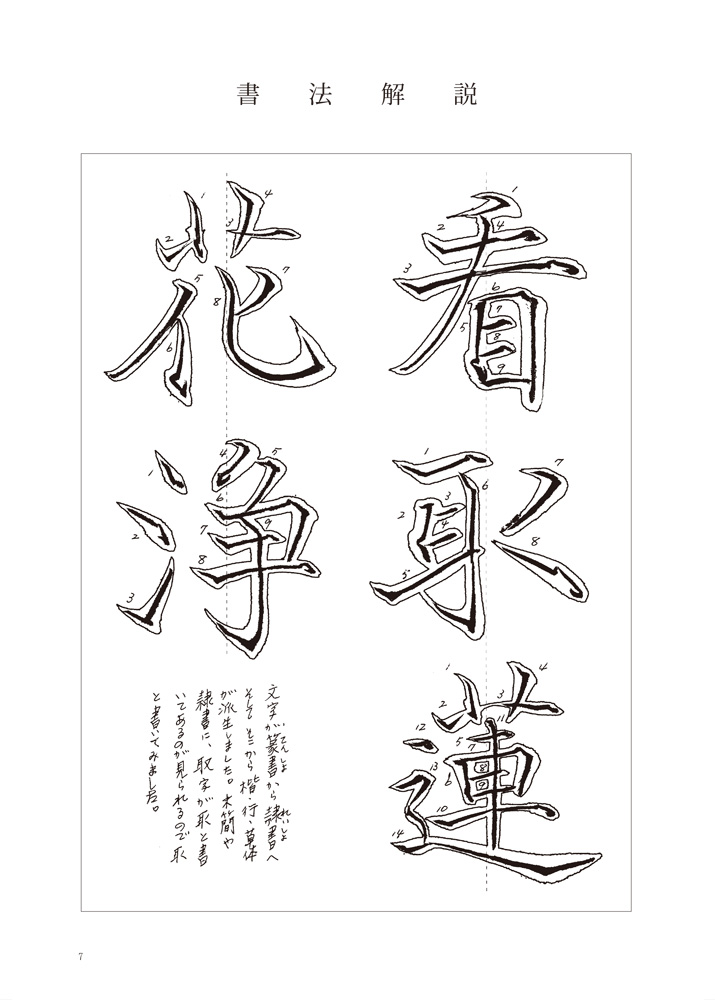 書法解説
看取蓮
花浄
文字が篆書から隷書へ
てんしょ れいしょ
そしてそこから楷・行・草体
が派生しました。木簡や
隷書に、取字が取と書
いてあるのが見られるので取
と書いてみました。
7